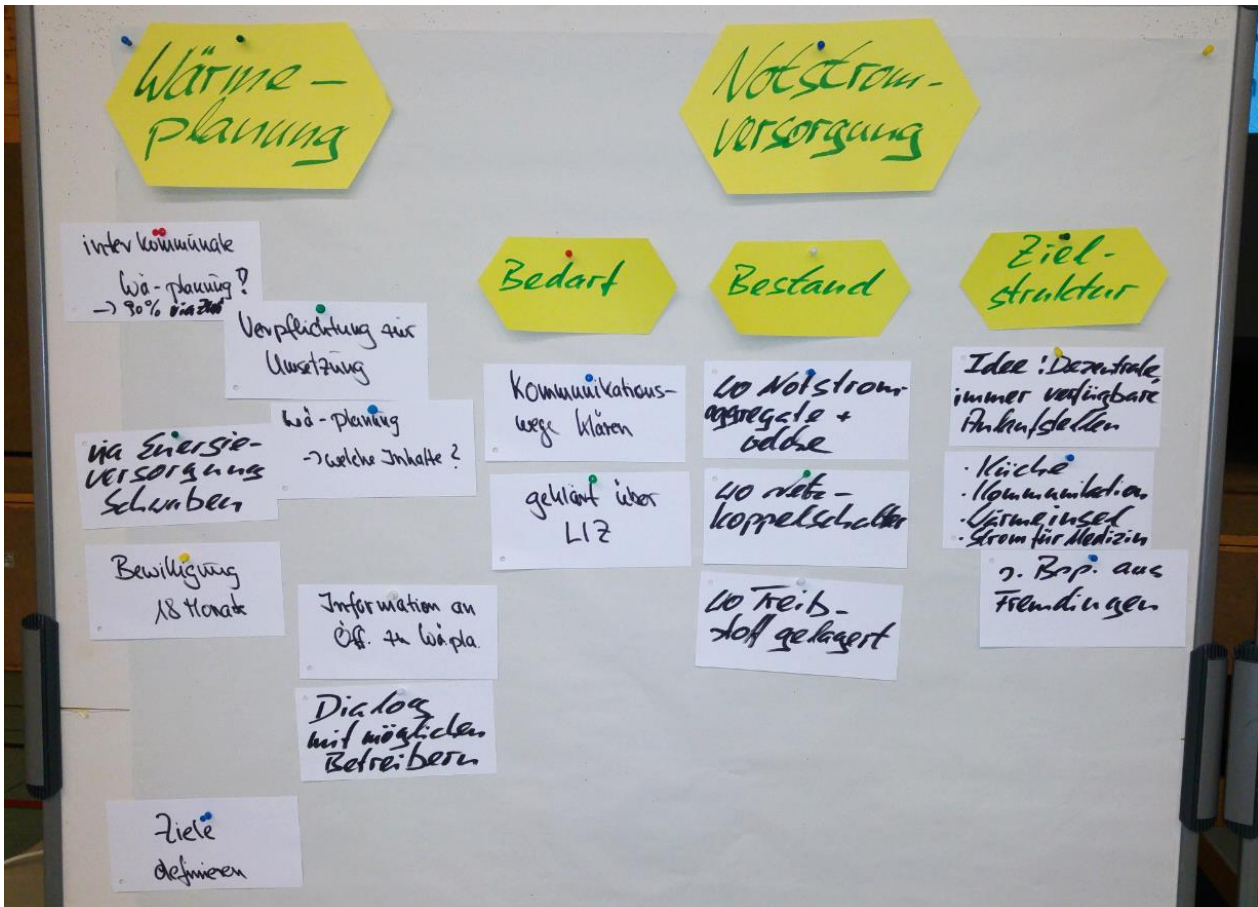 Wärme-
planung
interkommunale
Wä-planung?
→ 90%
Verpflichtung zur
Umsetzung
Wä-planung
→ welche Inhalte?
via Energie-
versorgung
Schwaben
Bewilligung
18 Monate
Information an
Öff. zu Wäpla.
Dialog
mit möglichen
Betreibern
Ziele
definieren
Notstrom-
versorgung
Bedarf
Kommunikations-
wege klären
geklärt über
LIZ
Bestand
wo Notstrom-
aggregate +
welche
wo Netz-
koppelschalter
wo Treib-
stoff gelagert
Ziel-
struktur
Idee: Dezentrale,
immer verfügbare
Anlaufstellen
· Küche
· Kommunikation
· Wärmeinsel
· Strom für Medizin
s. Bsp. aus
Fremdingen